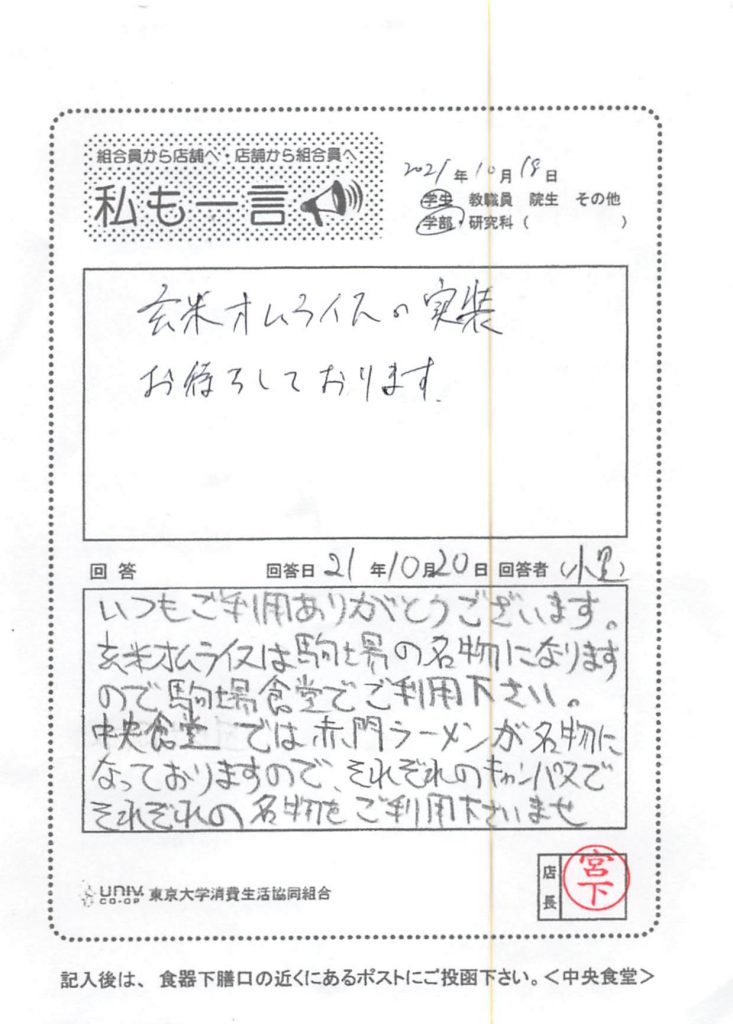 組合員から店舗へ・店舗から組合員へ
私も一言
2021年10月18日
学生 教職員 院生 その他
学部・研究科（ ）
玄米オムライスの実装
お待ちしております.
回答 回答日 21年10月20日 回答者（小里）
いつもご利用ありがとうございます。
玄米オムライスは駒場の名物になります
ので駒場食堂でご利用下さい。
中央食堂では赤門ラーメンが名物に
なっておりますので、それぞれのキャンパスで
それぞれの名物をご利用下さいませ
UNIV. CO-OP 東京大学消費生活協同組合
店長 宮下
記入後は、食器下膳口の近くにあるポストにご投函下さい。＜中央食堂＞